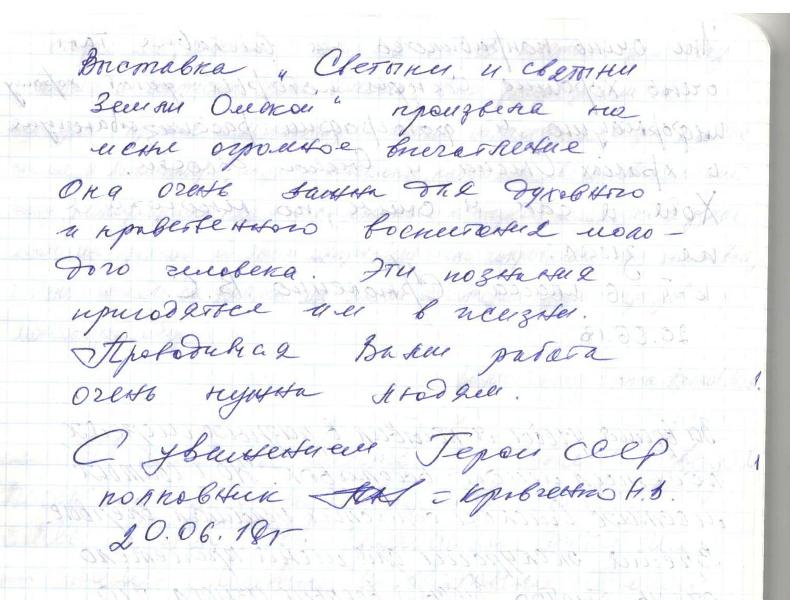 Выставка „Святыни и святыни
Земли Омской“ произвела на
меня огромное впечатление
Она очень важна для духовного
и нравственного воспитания моло-
дого человека. Эти познания
пригодяться им в жизни.
Проводимая Вами работа
очень нужна людям.
С уважением Герой СССР
полковник = Кравченко Н.В.
20.06.18г.